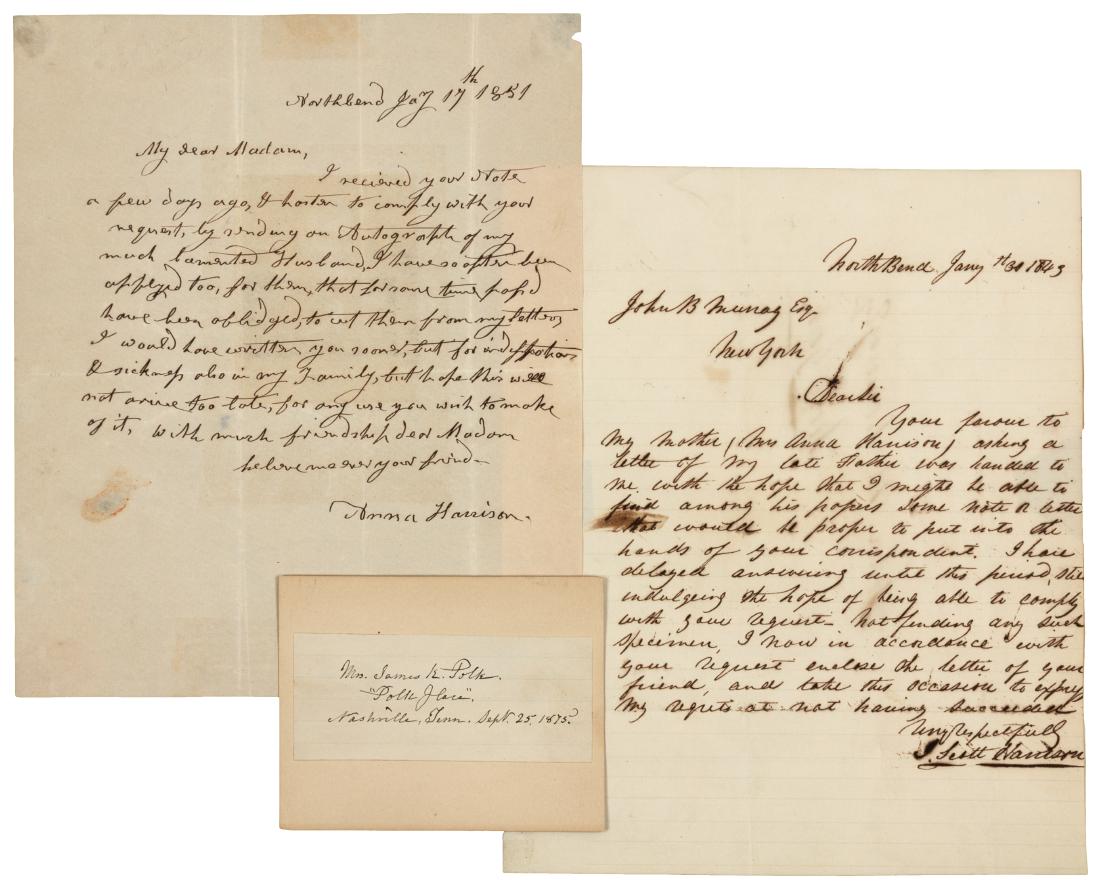 Northbend Jay 17th 1851
My dear Madam,
I recieved your Note
a few days ago, & hasten to comply with your
request, by sending an Autograph of my
much lamented Husband, I have so often been
applyed too, for them, that for some time pass'd
have been oblidged, to cut them from my letters
I would have written you sooner, but for indisposition
& sickness also in my Family, but hope this will
not arive too late, for any use you wish to make
of it, with much friendship dear Madam
believe me ever your friend
Anna Harrison.
Mrs. James K. Polk.
"Polk Place".
Nashville, Tenn. Sept. 25. 1875.
North Bend Jany 30 1843
John B Murray Esq.
New York
Dear Sir
Your favour to
my mother, (Mrs Anna Harrison) asking a
letter of my late Father was handed to
me with the hope that I might be able to
find among his papers some note or letter
that would be proper to put into the
hands of your correspondent. I have
delayed answering until this period, still
indulgeing the hope of being able to comply
with your request – not finding any such
specimen, I now in accordance with
your request enclose the letter of your
friend, and take this occasion to express
my regrets at not having succeeded
Very respectfully
J. Scott Harrison